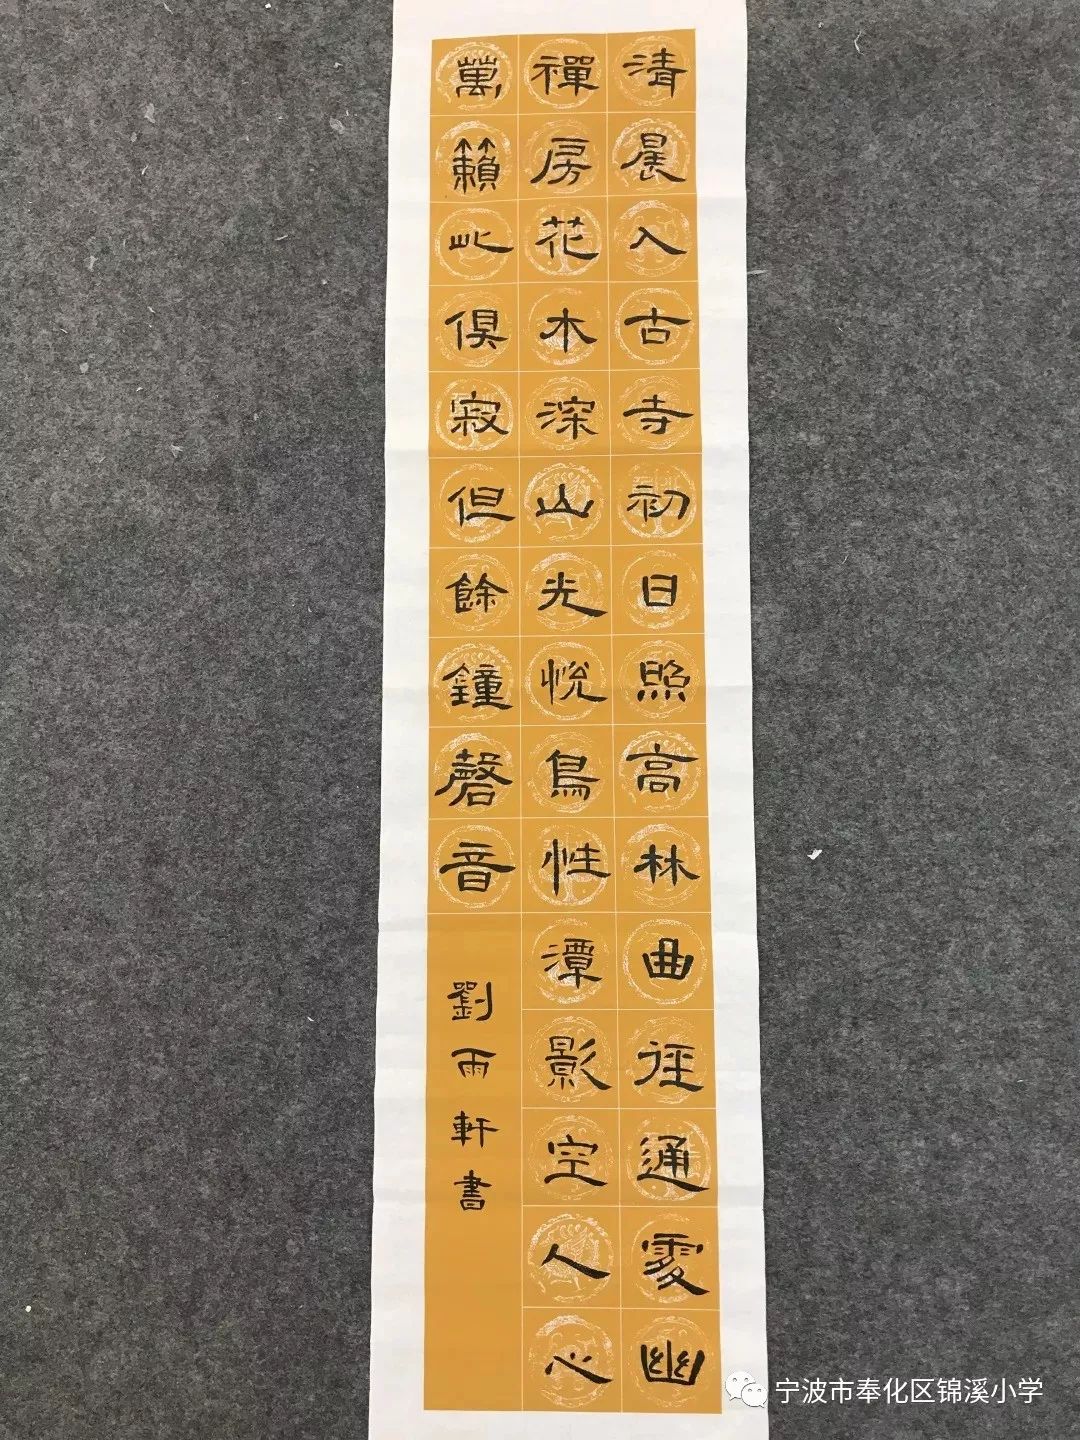 清晨入古寺初日照高林曲径通處幽
禪房花木深山光悅鳥性潭影空人心
萬籟此俱寂但餘鐘磬音
劉雨軒書
宁波市奉化区锦溪小学